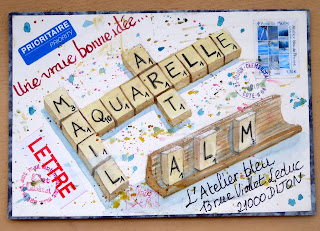 PRIORITAIRE
PRIORITY
Une vraie bonne idée...
ART
AQUARELLE
MAIL
ALM
LETTRE
L'Atelier bleu
13 rue Violet Leduc
21000 DIJON